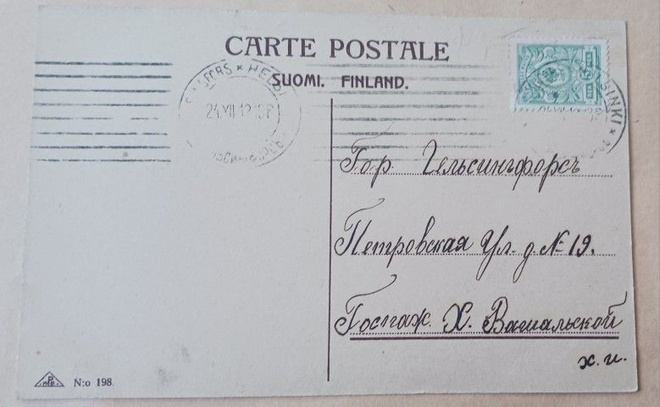 CARTE POSTALE
SUOMI. FINLAND.
24.XII.12.10F
Гор. Гельсингфорсъ
Петровская Ул. д. № 19.
Госпаж. Х. Вашальской
х. и.
N:o 198.